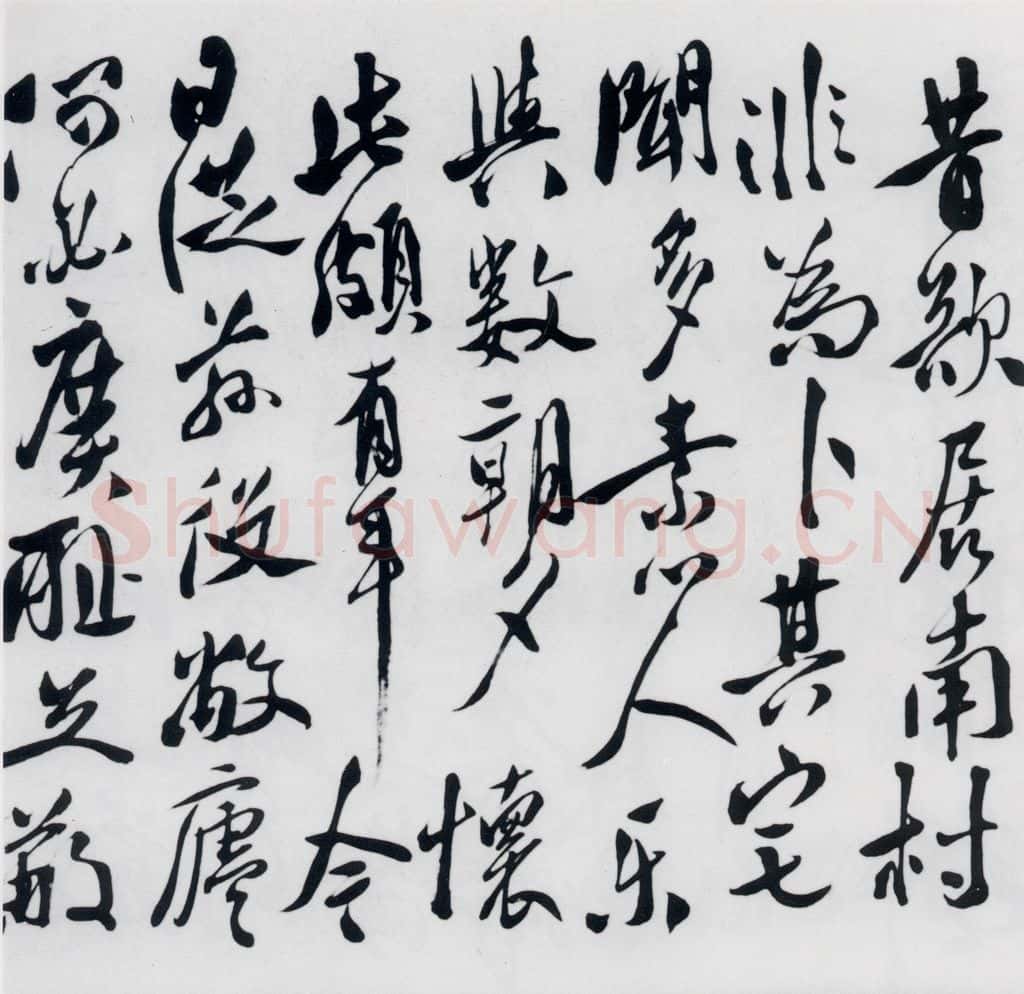 昔欲居南村
非為卜其宅
聞多素心人乐
與數朝夕懷
此頗有年今
日從茲役敝廬
何必廣取足蔽
Shufawang.CN